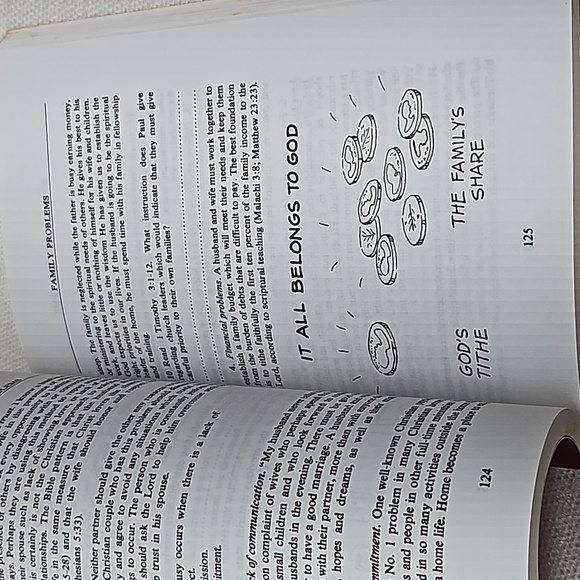 presence of
others by
ays. Perhaps they are using
eir spouse such as lack of
is certainly is not the Christian
lationships. The Bible Pattern is
fe in the same measure
5:28) and that the wife
hesians 5:33).
Neither partner should give the other
Christian couple who has this problem
y and agree to avoid
gs to occur. The person who is
should ask the Lord to help him
p trust in his spouse.
usy occurs when there is a lack of
ct.
ission.
itment.
ck of communication. "My husband
on complaint of wives who perhaps
small children and who look forward
usbands in the evening. There must
to have a good marriage. A husband
with their partner, more than with
hopes and dreams, as well as their
mitment. One well-known Christian
No. 1 problem in many Christian
s and people in other full-time
in so many activities outside the
home life. Home becomes a place
124
FAMILY PROBLEMS
The family is neglected while the father is busy earning money,
ministering to the spiritual needs of others. He gives his best to his
and leaves little or nothing of himself for his wife and children.
expects us to use the wisdom He has given us to establish the
priorities in our lives. If the husband is going to be the spiritual
of the home, he must spend time with his family in fellowship
and training.
Read 1 Timothy 3:1-12. What instruction does Paul give
regarding church leaders which would indicate that they must give
careful priority to their own families?
4. Financial problems. A husband and wife must work together to
establish a family budget which will meet their needs and keep them
from the burden of debts that are difficult to pay. The best foundation
is to tithe faithfully the first ten percent of the family income to the
Lord, according to scriptural teaching (Malachi 3:8; Matthew 23:23).
IT ALL BELONGS TO GOD
GOD'S
TITHE
THE FAMILY'S
SHARE
125